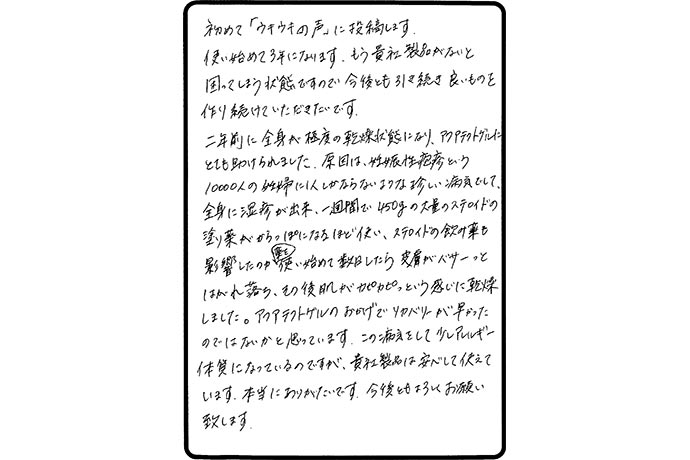 初めて「ウキウキの声」に投稿します.
使い始めて3年になります. もう貴社製品がないと
困ってしまう状態ですので今後とも引き続き良いものを
作り続けていただきたいです.
二年前に全身が極度の乾燥状態になり、アクアテクトゲルに
とても助けられました. 原因は、妊娠性疱疹という
10000人の妊婦に1人しかならないような珍しい病気でして、
全身に湿疹が出来、一週間で450gの大量のステロイドの
塗り薬がからっぽになるほど使い、ステロイドの飲み薬も
影響したのか薬を使い始めて数日したら皮膚がバサーっと
はがれ落ち、その後肌がカピカピっという感じに乾燥
しました。アクアテクトゲルのおかげでリカバリーが早かった
のではないかと思っています. この病気をして少しアレルギー
体質になっているのですが、貴社製品は安心して使えて
います. 本当にありがたいです. 今後ともよろしくお願い
致します.